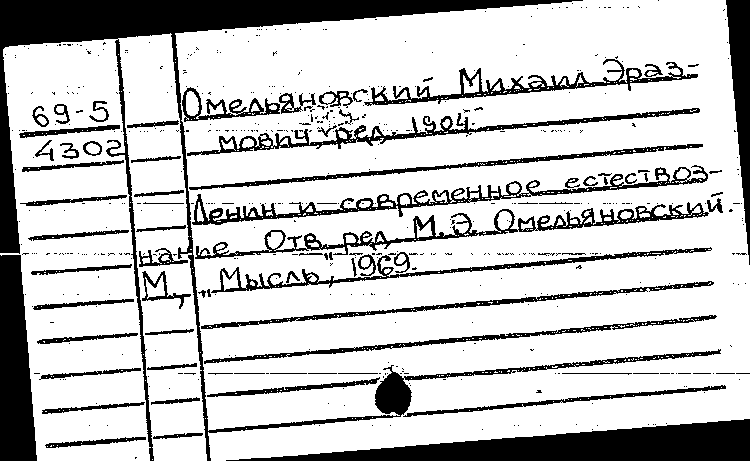 69-5
4302
Омельяновский, Михаил Эраз-
мович, ред. 1904-
Ленин и современное естествоз-
нание. Отв. ред. М.Э. Омельяновский.
М., „Мысль", 1969.